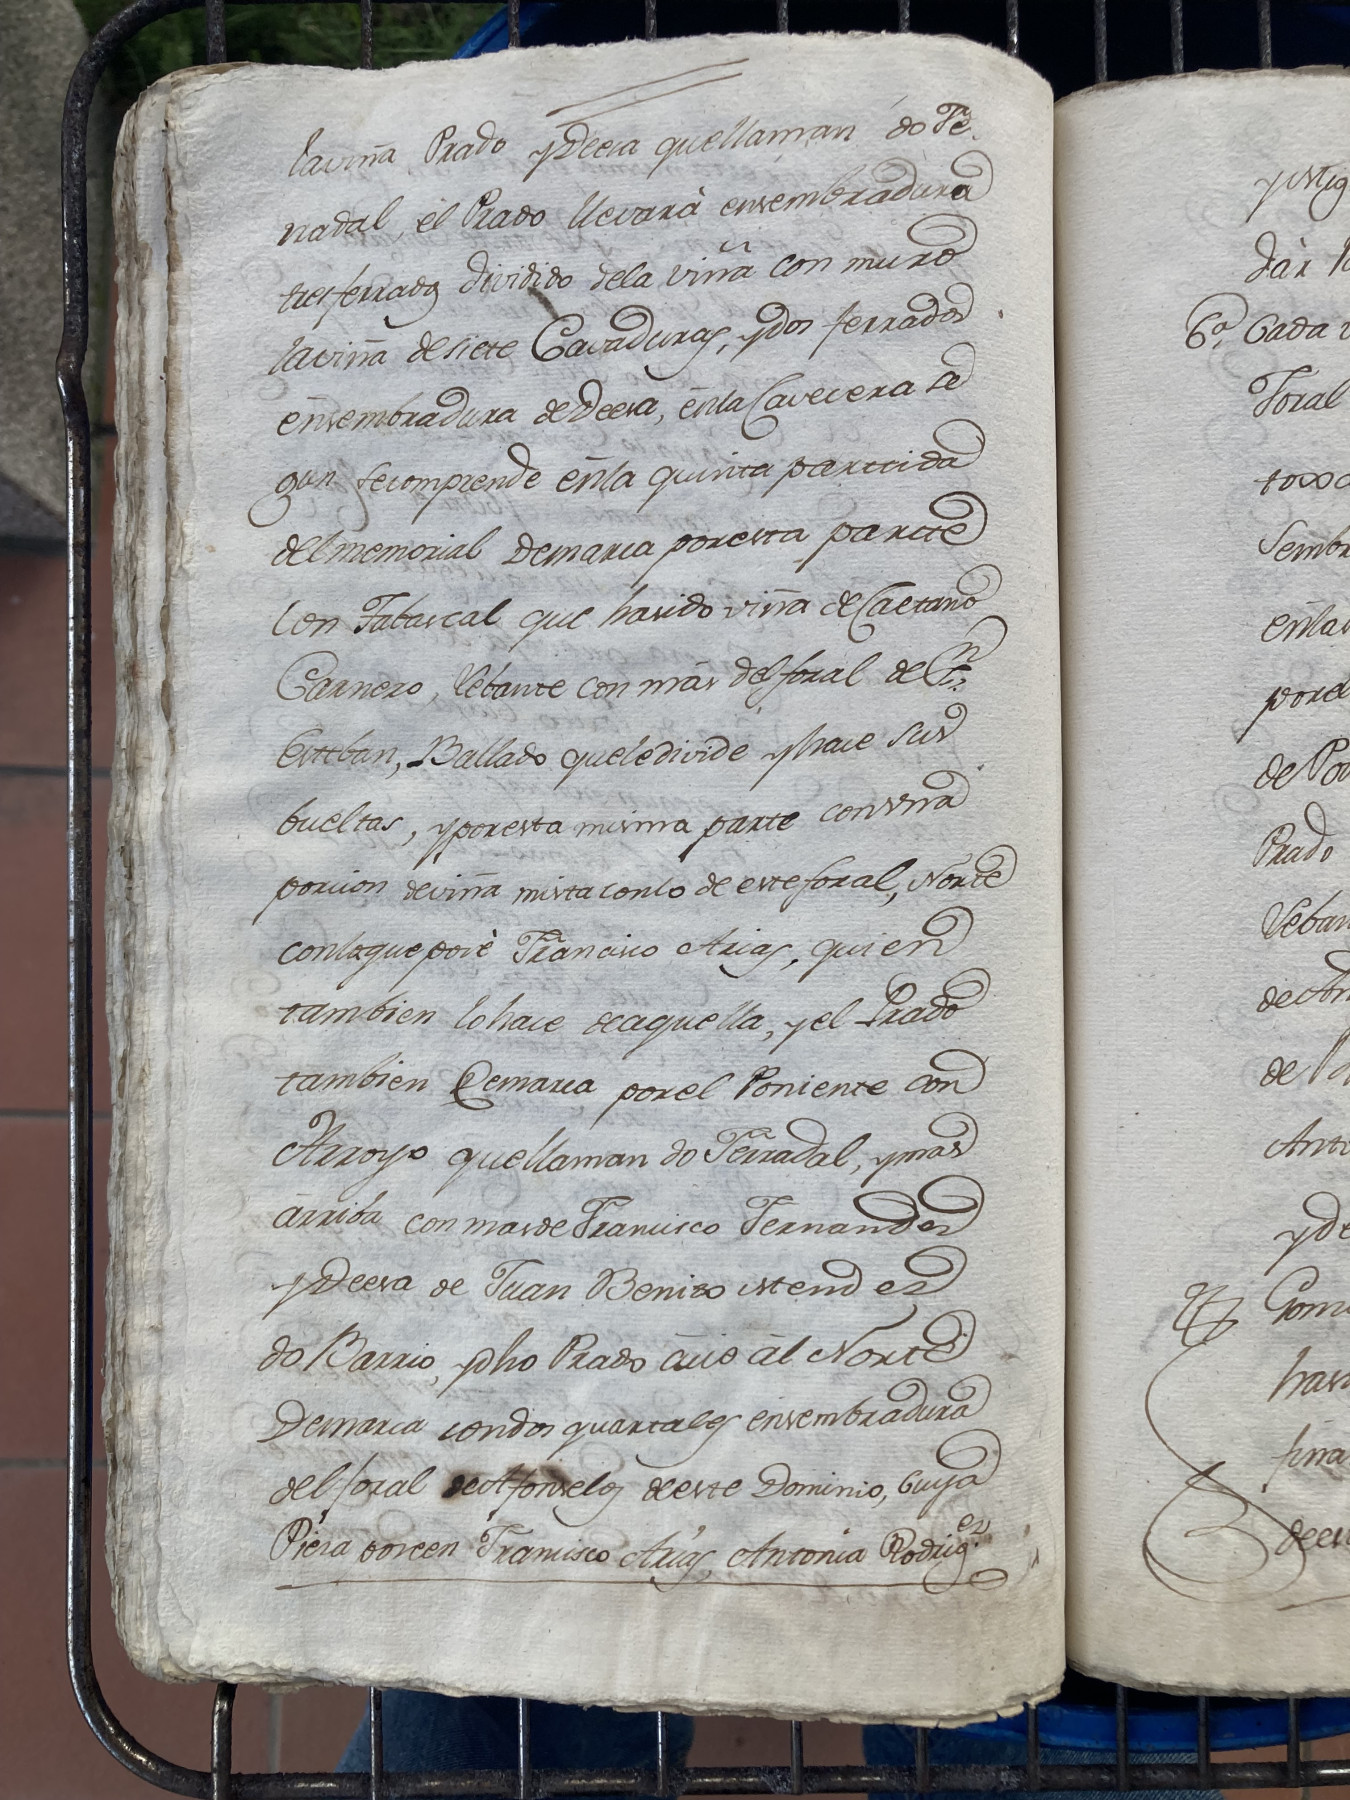 laviña Prado y Deesa quellaman do Fe-
nadal, el Prado llevará ensembradura
tres ferrados dividido dela viña con muro
laviña desiete Cavaduras, y dos ferrados
ensembradura de Deesa, enla Cavecera se
gun secomprende enla quinta partida
delmemorial Demarca poresta parte
con Tabarcal que hasido viña de Caetano
Carnero, Lebante con más del foral de Sn.
Esteban, Ballado queledivide y hace sus
bueltas, y poresta misma parte con vna
porcion deviña mista conlo de este foral, Norte
conloque poseè Francisco Arias, quien
tambien lohace deaquella, y el Prado
tambien Demarca porel Poniente con
Arroyo quellaman do Ferradal, y mas
arriba con mas de Francisco Fernandez
y Deesa de Juan Benito
do Barrio, y dho Prado acio al Norte
Demarca condos quartales ensembradura
del foral de Afonselos deeste Dominio, Cuya
Pieza poseen Francisco Arias, Antonia Rodrigez
dár
6a. Cada
Foral
Sembr
enlas
porel
de
Prado
Leban
de
Anto
y de
hasi